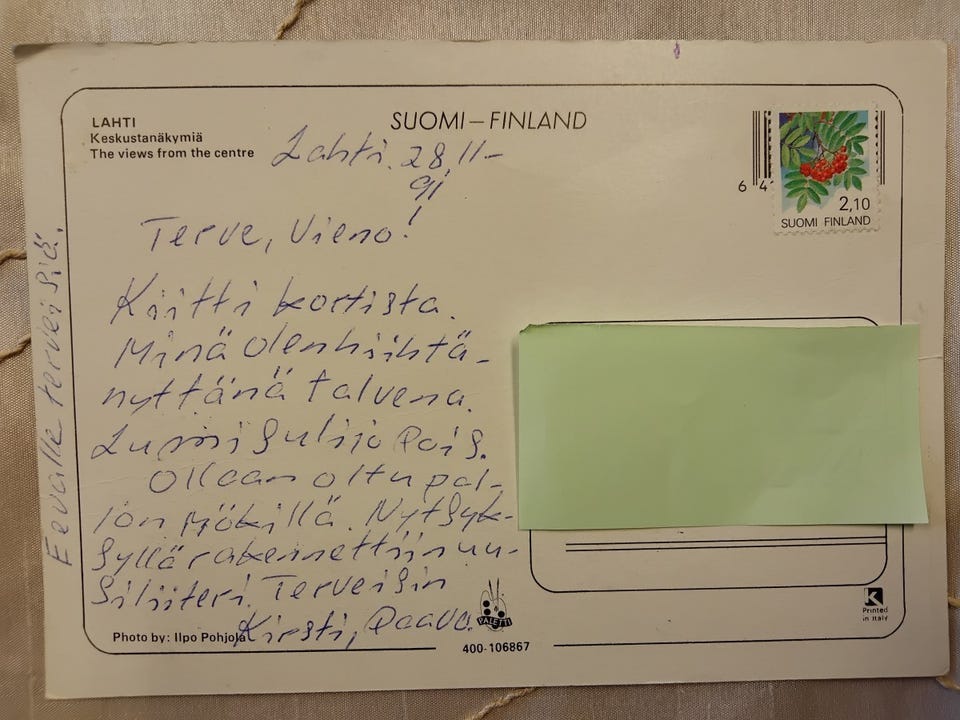 LAHTI
Keskustanäkymiä
The views from the centre
SUOMI – FINLAND
6 4
2,10
SUOMI FINLAND
Lahti. 28.11-
91
Terve, Vieno!
Kiitti kortista.
Minä olen hiihtä-
nyt tänä talvena.
Lumi suli jo pois.
Ollaan oltu pal-
jon mökillä. Nyt syk-
syllä rakennettiin uu-
si liiteri. Terveisin
Kirsti, Paavo.
Eevalle terveisiä.
PALETTI
Photo by: Ilpo Pohjola
400-106867
K
Printed
in Italy